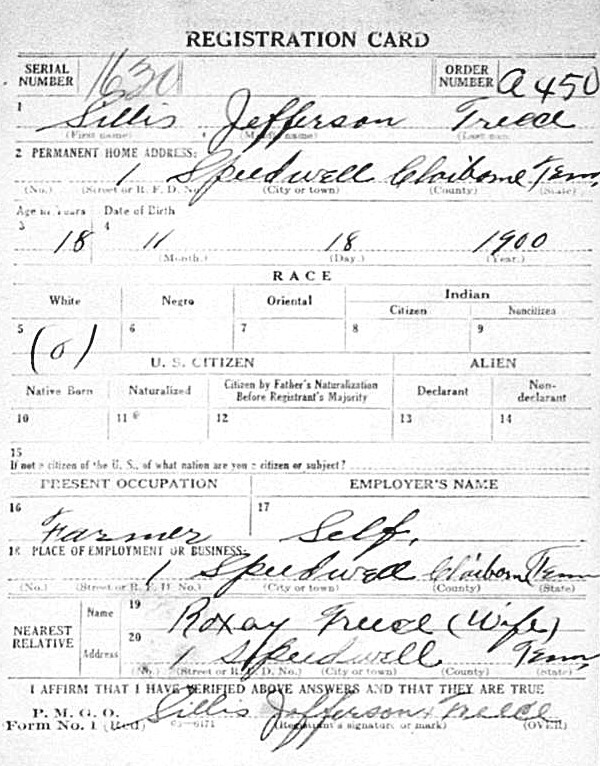 REGISTRATION CARD
SERIAL NUMBER 1630 ORDER NUMBER A450
1 Sillis Jefferson Treece
(First name) (Middle name) (Last name)
2 PERMANENT HOME ADDRESS:
1 Speedwell Claiborne Tenn,
(No.) (Street or R. F. D. No.) (City or town) (County) (State)
Age in Years Date of Birth
3 18 4 11 18 1900
(Month.) (Day.) (Year.)
RACE
White Negro Oriental Indian
Citizen Noncitizen
5 (o) 6 7 8 9
U. S. CITIZEN ALIEN
Native Born Naturalized Citizen by Father's Naturalization Before Registrant's Majority Declarant Non-declarant
10 11 12 13 14
15
If not a citizen of the U. S., of what nation are you a citizen or subject?
PRESENT OCCUPATION EMPLOYER'S NAME
16 Farmer 17 Self,
18 PLACE OF EMPLOYMENT OR BUSINESS:
1 Speedwell Claiborne Tenn
(No.) (Street or R. F. D. No.) (City or town) (County) (State)
NEAREST RELATIVE Name 19 Roxay Treece (Wife)
Address 20 1 Speedwell Tenn,
(No.) (Street or R. F. D. No.) (City or town) (County) (State)
I AFFIRM THAT I HAVE VERIFIED ABOVE ANSWERS AND THAT THEY ARE TRUE
P. M. G. O.
Form No. 1 (Red) Sillis Jefferson x Treece
(Registrant's signature or mark) (OVER)